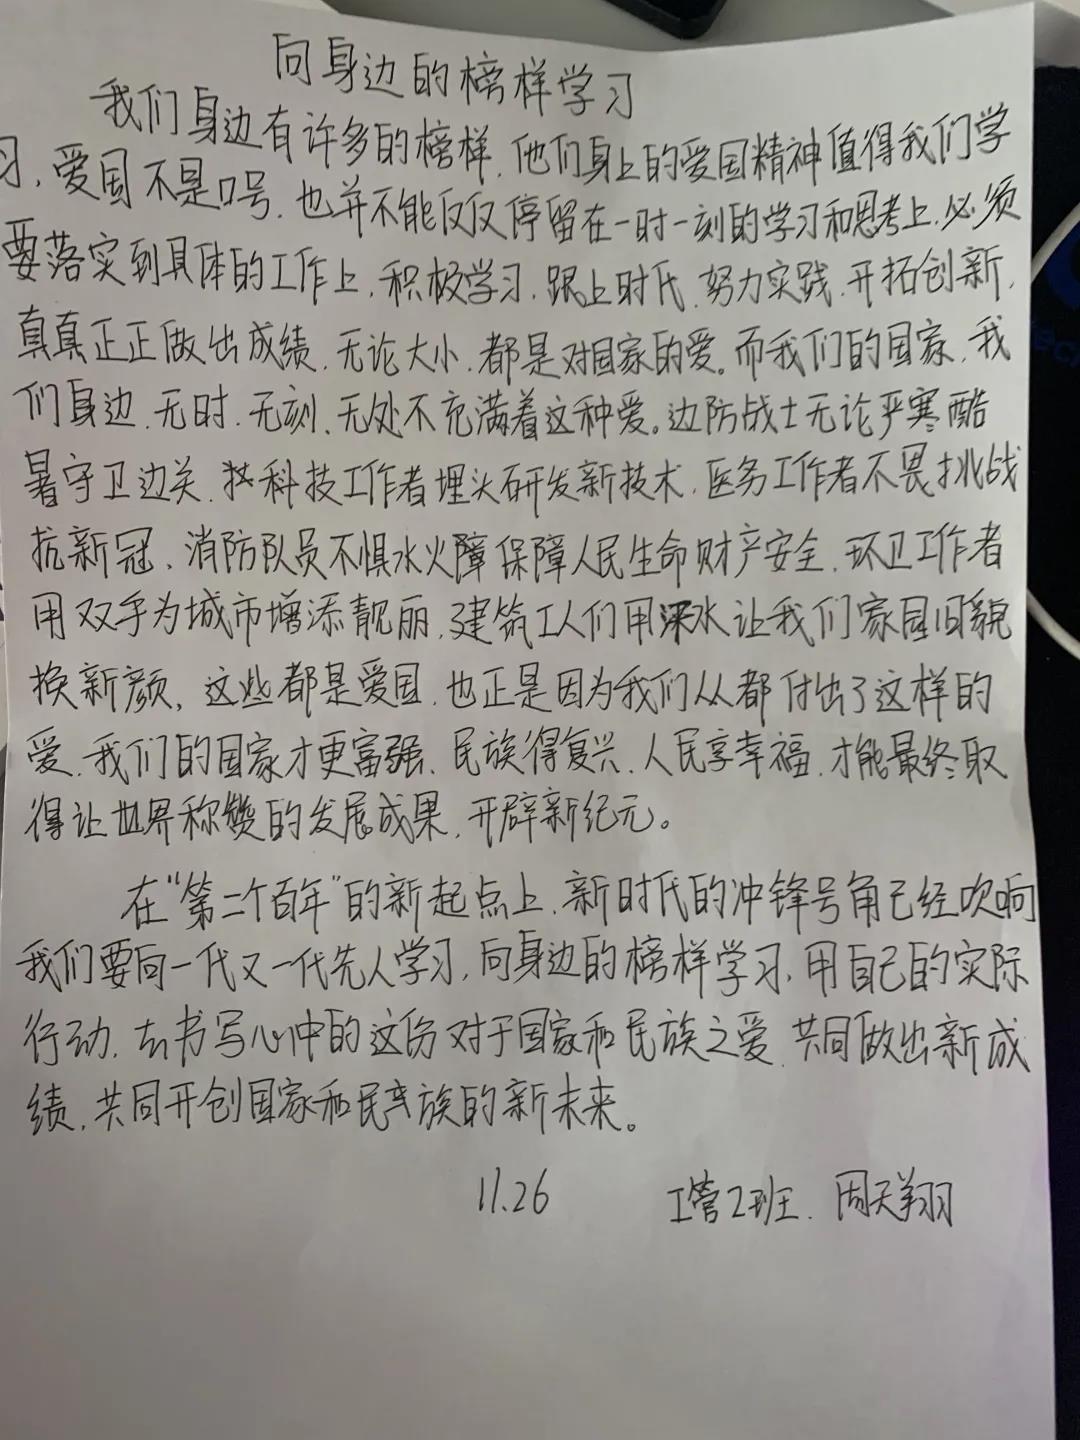 向身边的榜样学习
我们身边有许多的榜样,他们身上的爱国精神值得我们学
习,爱国不是口号,也并不能仅仅停留在一时一刻的学习和思考上,必须
要落实到具体的工作上,积极学习,跟上时代,努力实践,开拓创新,
真真正正做出成绩,无论大小,都是对国家的爱。而我们的国家,我
们身边,无时,无刻、无处不充满着这种爱。边防战士无论严寒酷
暑守卫边关,科技工作者埋头研发新技术,医务工作者不畏挑战
抗新冠,消防队员不惧水火障保障人民生命财产安全,环卫工作者
用双手为城市增添靓丽,建筑工人们用水让我们家园旧貌
换新颜,这些都是爱国,也正是因为我们从都付出了这样的
爱,我们的国家才更富强、民族得复兴、人民享幸福,才能最终取
得让世界称赞的发展成果,开辟新纪元。
在“第二个百年”的新起点上,新时代的冲锋号角已经吹响
我们要向一代又一代先人学习,向身边的榜样学习,用自己的实际
行动,去书写心中的这份对于国家和民族之爱,共同做出新成
绩,共同开创国家和民族的新未来。
11.26 工管2班. 周天翔